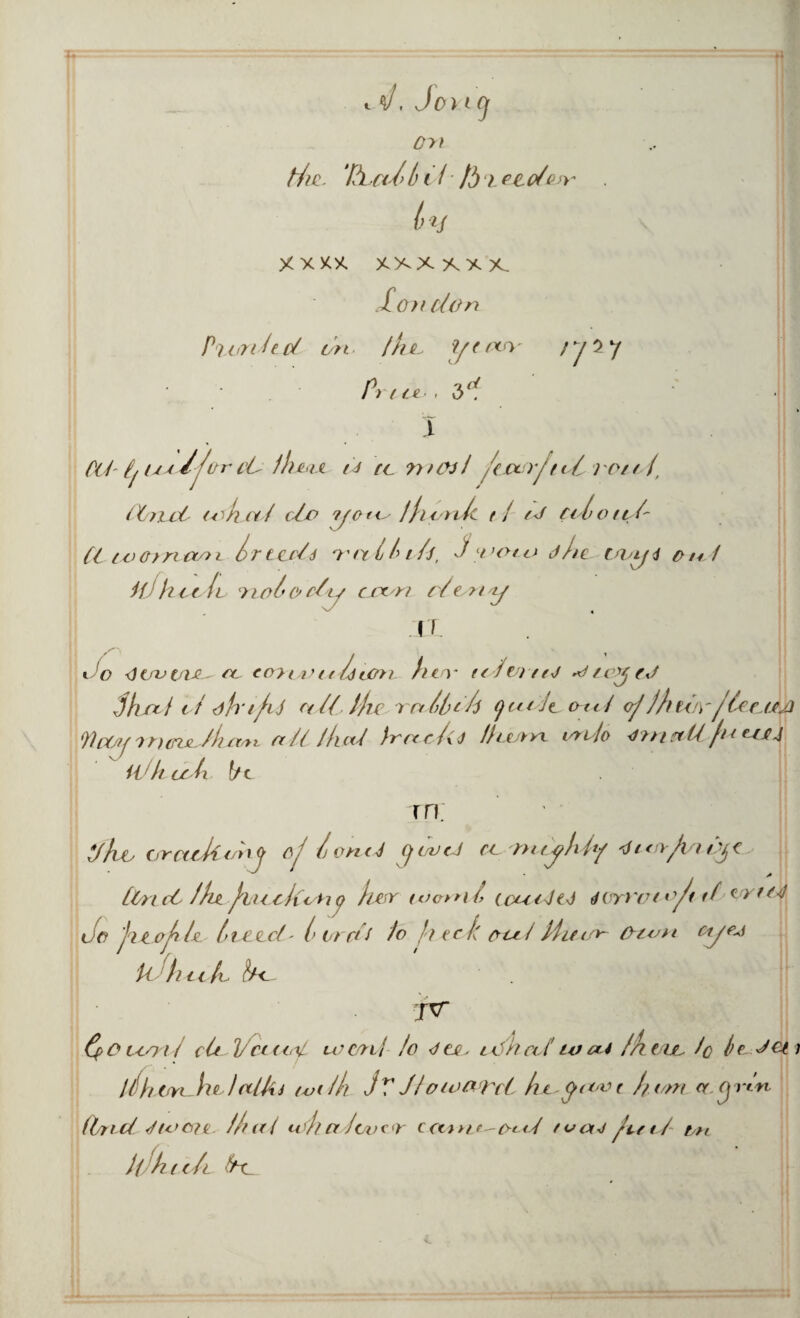 A. Song
on
the Rabbit Breeder
by
xxxx xxxxxx
London
Printed in the year 1727
Price, 3d.
I
At Guilford there is a most fearful rout,
And what do you think it is about
A woman breeds rabbits, I vow she cry's out
Which nobody can deny
II
So severe a convulsion her uterus seizes
That it strips all the rabbits quite out of their fleeces
Nay more than all that cracks them into small pieces
Which &c
III.
The cracking of bones gives a mighty surprize
And the pricking her womb causes sorrowful cries
So people breed birds to peck out their own eyes
Which &c
IV
Count de Vauy went to see what was there to be seen
When he talks with Jr Howard he gave him a grin
And swore that whatever came out was put in
Which &c